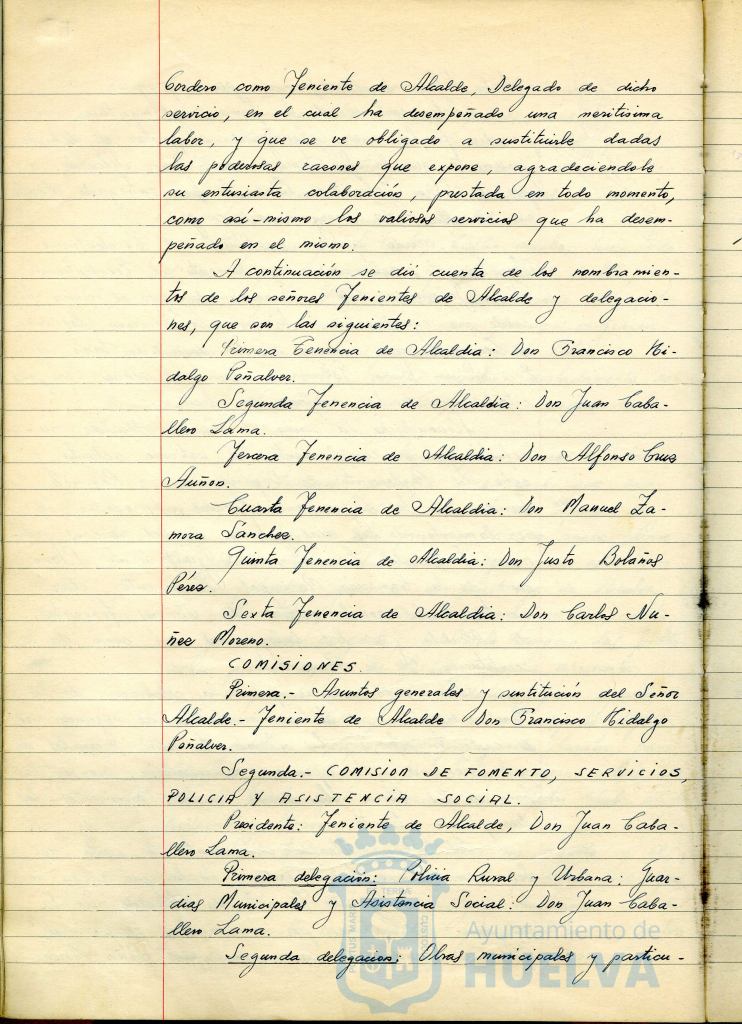 Cordero como Teniente de Alcalde, Delegado de dicho
servicio, en el cual ha desempeñado una meritisima
labor, y que se ve obligado a sustituirle dadas
las poderosas razones que expone, agradeciendole
su entusiasta colaboración, prestada en todo momento,
como asi-mismo los valiosos servicios que ha desem-
peñado en el mismo.
A continuación se dió cuenta de los nombramien-
tos de los señores Tenientes de Alcalde y delegacio-
nes, que son las siguientes:
Primera Tenencia de Alcaldia: Don Francisco Hi-
dalgo Peñalver.
Segunda Tenencia de Alcaldia: Don Juan Caba-
llero Lama.
Tercera Tenencia de Alcaldia: Don Alfonso Cruz
Auñon.
Cuarta Tenencia de Alcaldia: Don Manuel Za-
mora Sánchez.
Quinta Tenencia de Alcaldia: Don Justo Bolaños
Pérez.
Sexta Tenencia de Alcaldia: Don Carlos Nu-
ñez Moreno.
COMISIONES.
Primera.- Asuntos generales y sustitución del Señor
Alcalde.- Teniente de Alcalde Don Francisco Hidalgo
Peñalver.
Segunda.- COMISION DE FOMENTO, SERVICIOS,
POLICIA Y ASISTENCIA SOCIAL.
Presidente: Teniente de Alcalde, Don Juan Caba-
llero Lama.
Primera delegación: Policia Rural y Urbana: Guar-
dias Municipales y Asistencia Social: Don Juan Caba-
llero Lama.
Segunda delegacion: Obras municipales y particu-
Ayuntamiento de
HUELVA